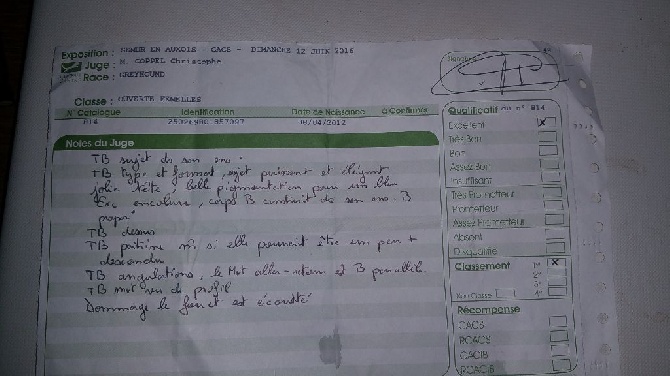 Exposition : SEMUR EN AUXOIS - CACS - DIMANCHE 12 JUIN 2016
Juge : M. COPPEL Christophe
Race : GREYHOUND
Signature
Classe : OUVERTE FEMELLES
N° Catalogue Identification Date de Naissance à Confirmer
814 18/04/2012
Notes du Juge
TB sujet de son
TB type et format, sujet puissant et élégant
jolie tête, belle pigmentation pour un bleu
Exc encolure, corps B construit de son B
TB dessus
TB poitrine m si elle pouvait être un peu +
descendue
TB angulations, le Mvt aller-retour est B parallèle.
TB mvt vu de profil
Dommage le fouet est écourté
Qualificatif du n° 814
Excellent X
Très Bon
Bon
Assez Bon
Insuffisant
Très Prometteur
Prometteur
Assez Prometteur
Absent
Disqualifié
Classement 1er X
2e
3e
Non Classé 4e
Récompense
CACS
RCACS
CACIB
RCACIB